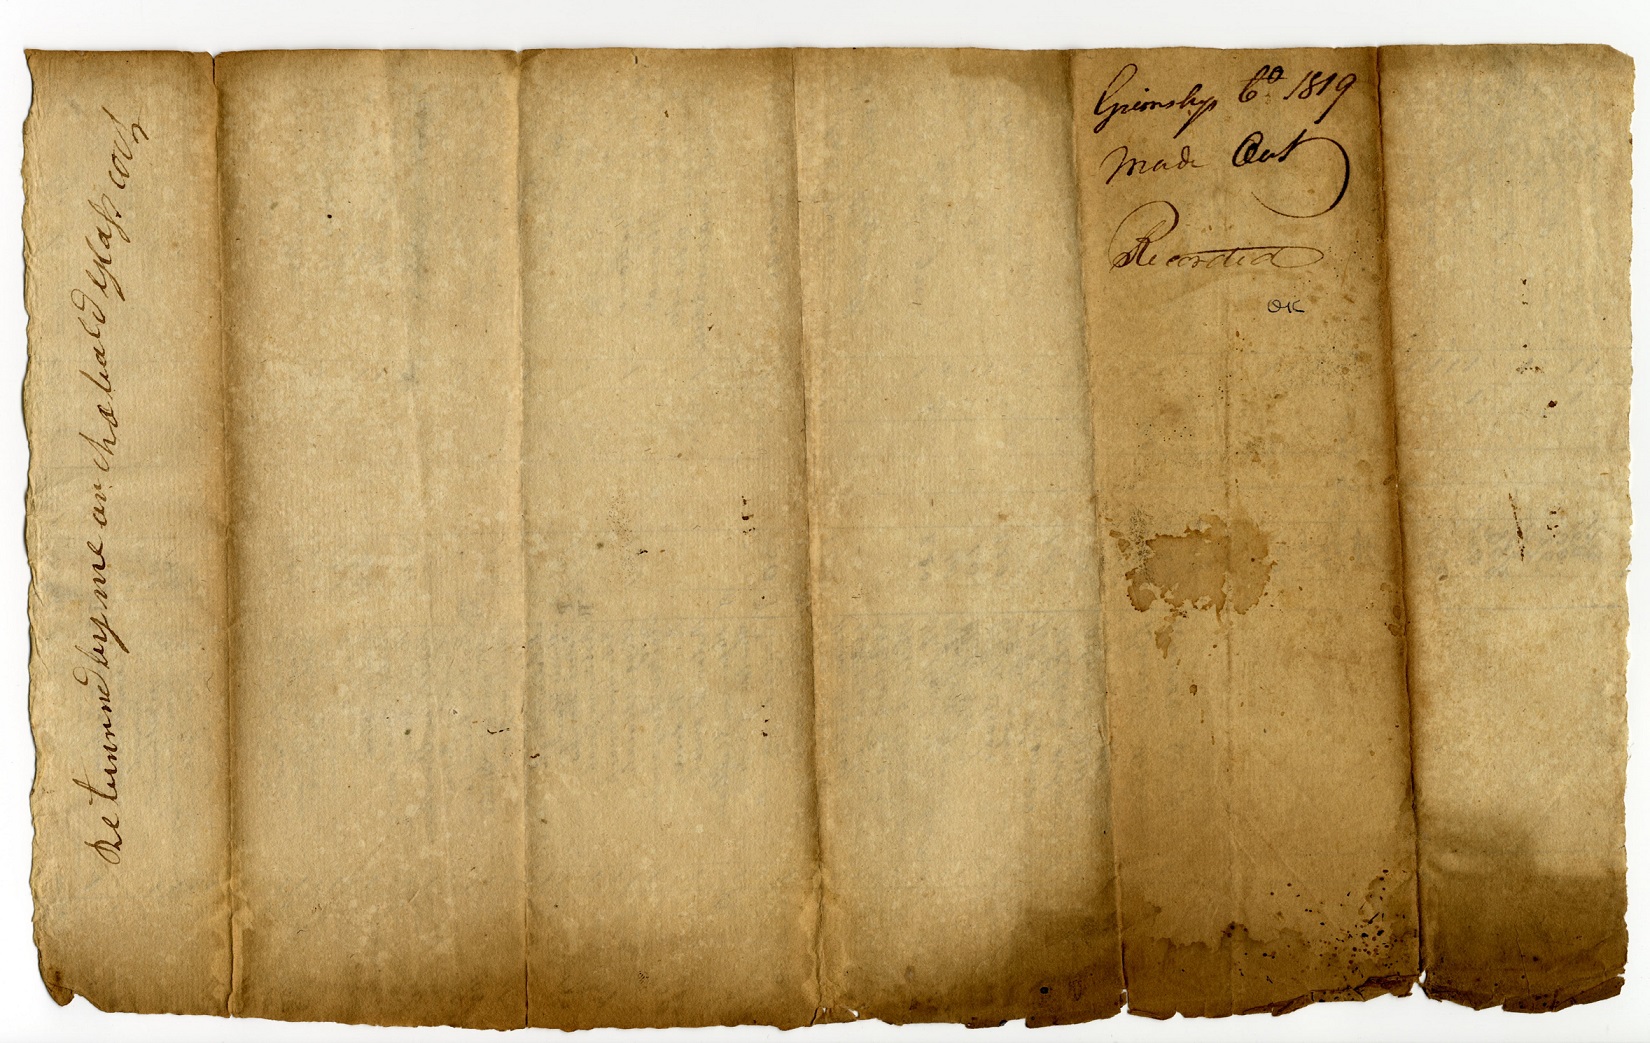 Grimslys Co 1819
Made Out
Recorded
OK
Returned by me archabald glass